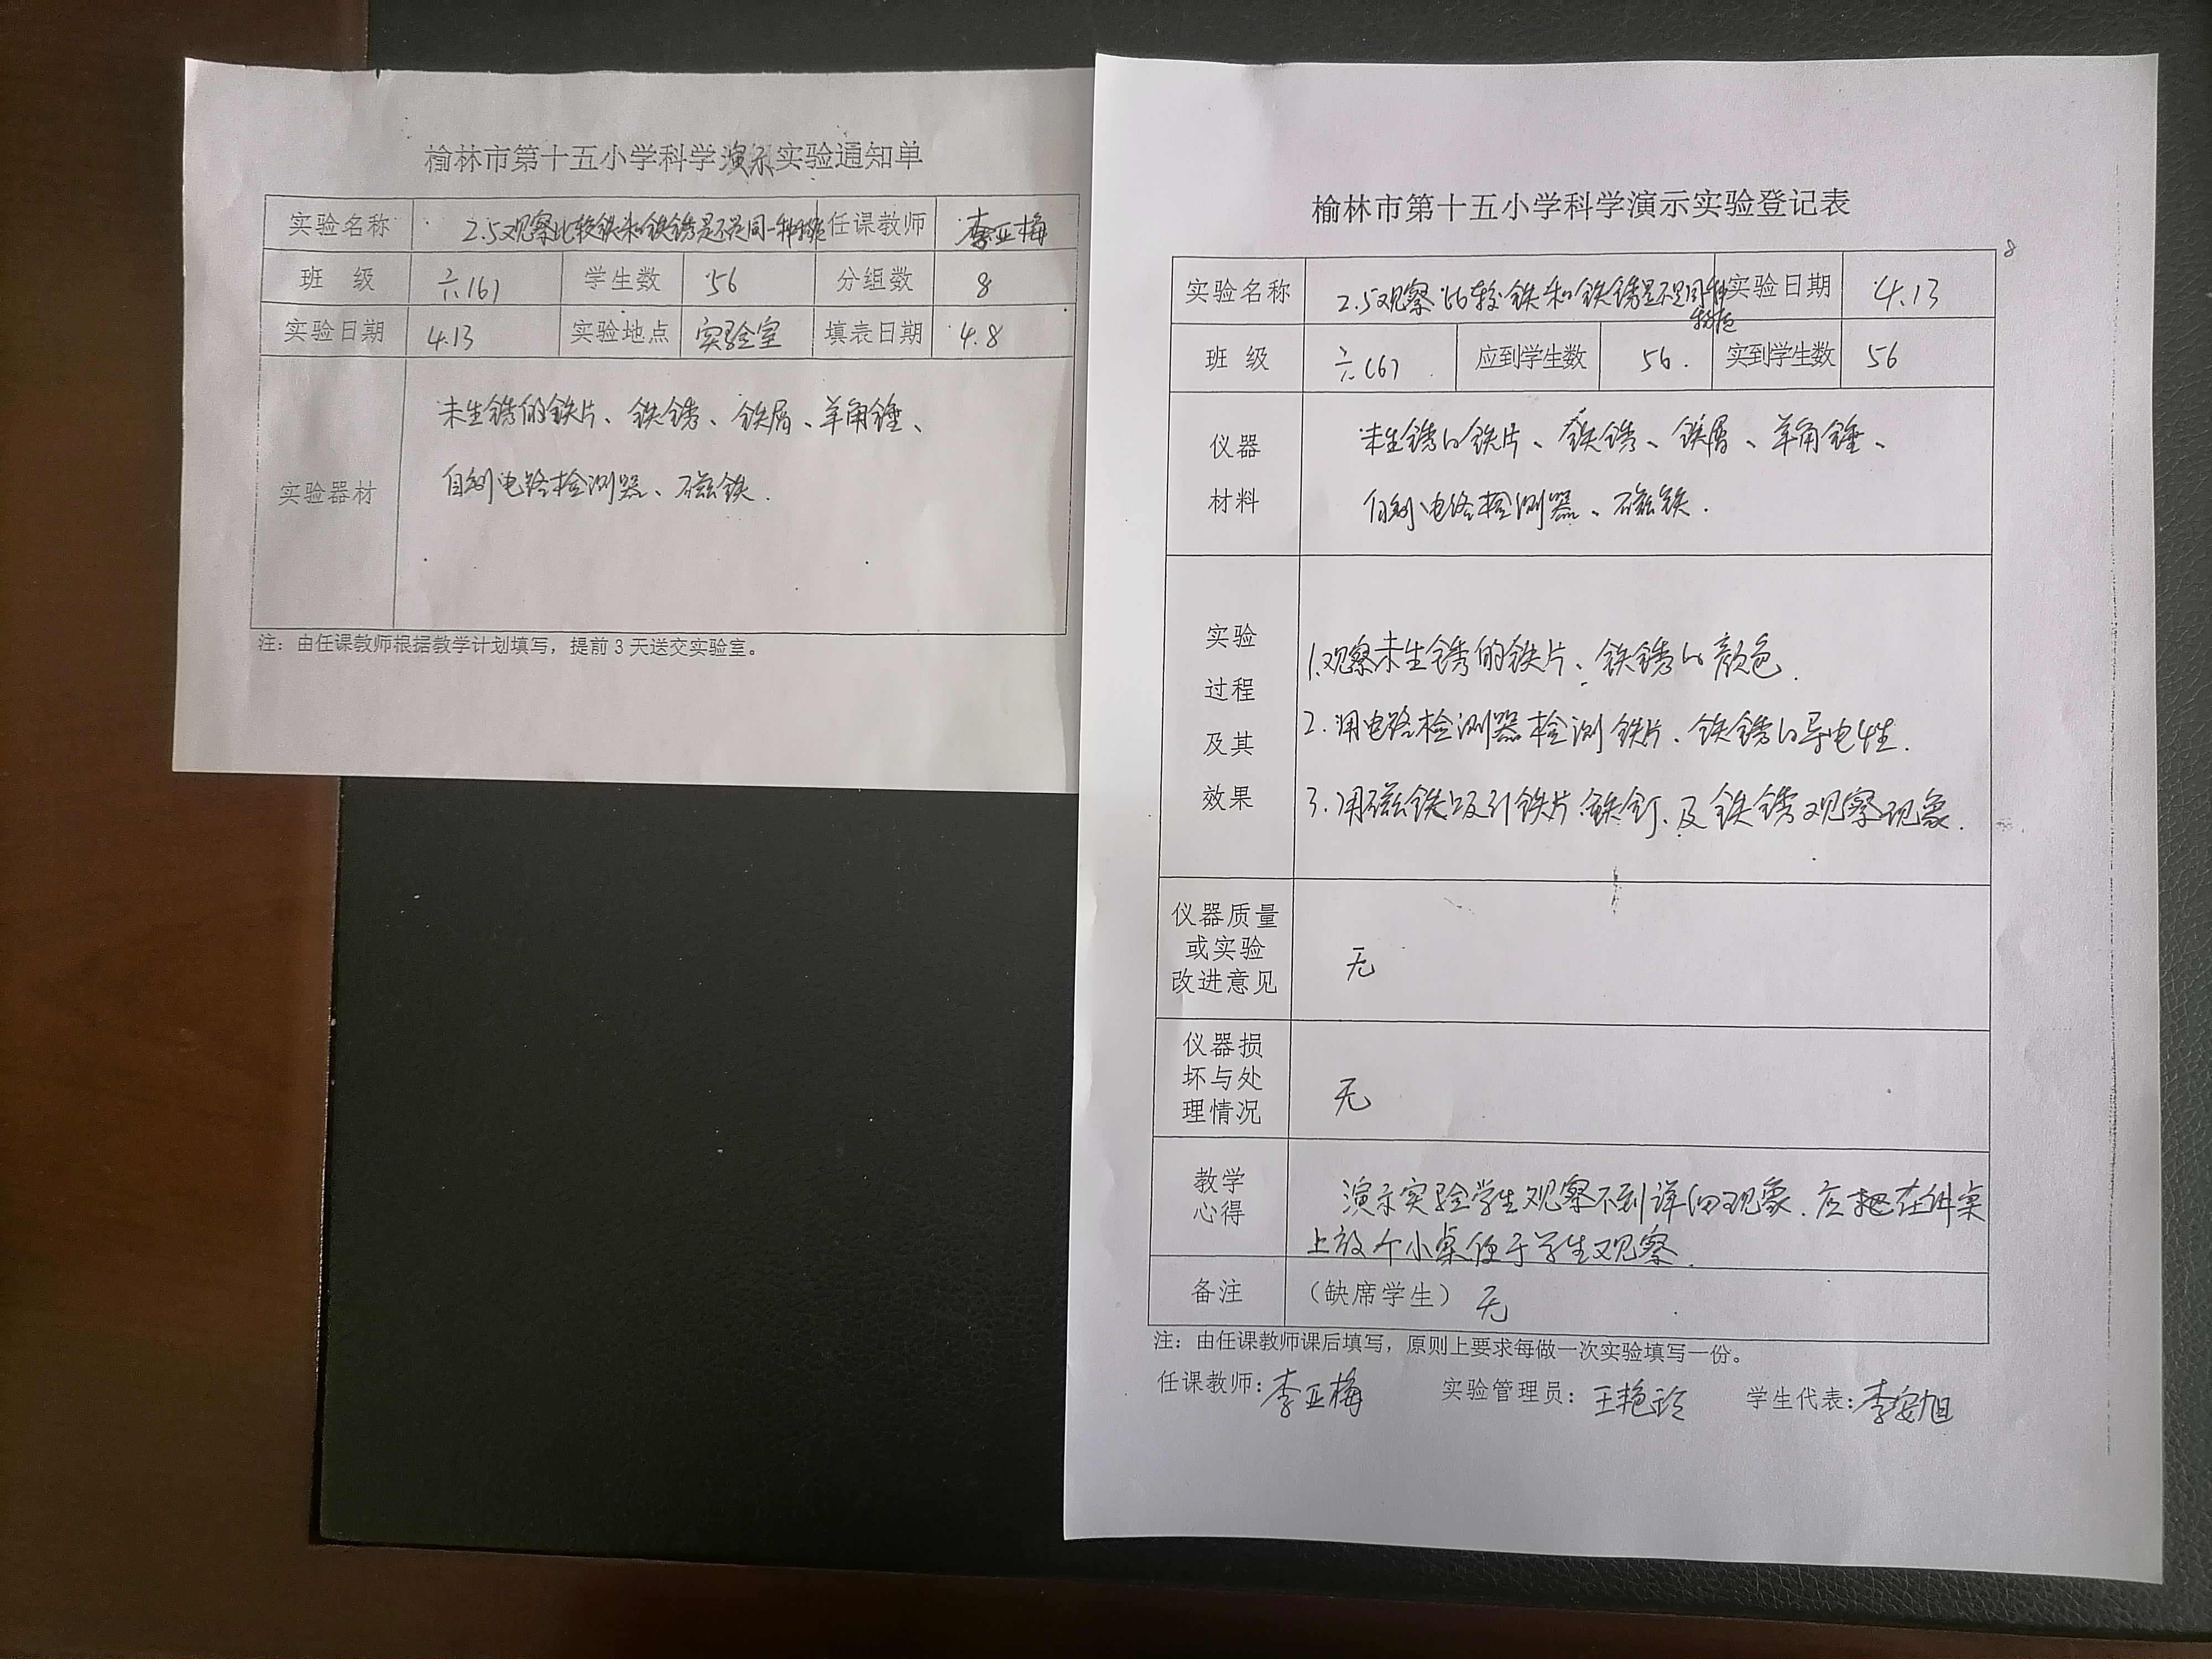 榆林市第十五小学科学演示实验通知单
实验名称 2.5观察比较铁和铁锈是不是同一种物质 任课教师 李亚梅
班 级 六(6) 学生数 56 分组数 8
实验日期 4.13 实验地点 实验室 填表日期 4.8
实验器材
未生锈的铁片、铁锈、铁屑、羊角锤、
自制电路检测器、磁铁.
注：由任课教师根据教学计划填写，提前3天送交实验室。
榆林市第十五小学科学演示实验登记表
8
实验名称 2.5观察比较铁和铁锈是不是同一种 实验日期 4.13
物质
班 级 六(6) 应到学生数 56. 实到学生数 56
仪器
材料
未生锈的铁片、铁锈、铁屑、羊角锤、
自制电路检测器、磁铁.
实验
过程
及其
效果
1.观察未生锈的铁片、铁锈的颜色.
2.用电路检测器检测铁片、铁锈的导电性.
3.用磁铁吸引铁片、铁钉、及铁锈观察现象.
仪器质量
或实验
改进意见
无
仪器损
坏与处
理情况
无
教学
心得
演示实验学生观察不到详细现象.应把在讲桌
上放个小桌便于学生观察.
备注 （缺席学生） 无
注：由任课教师课后填写，原则上要求每做一次实验填写一份。
任课教师：李亚梅 实验管理员：王艳玲 学生代表：李安旭